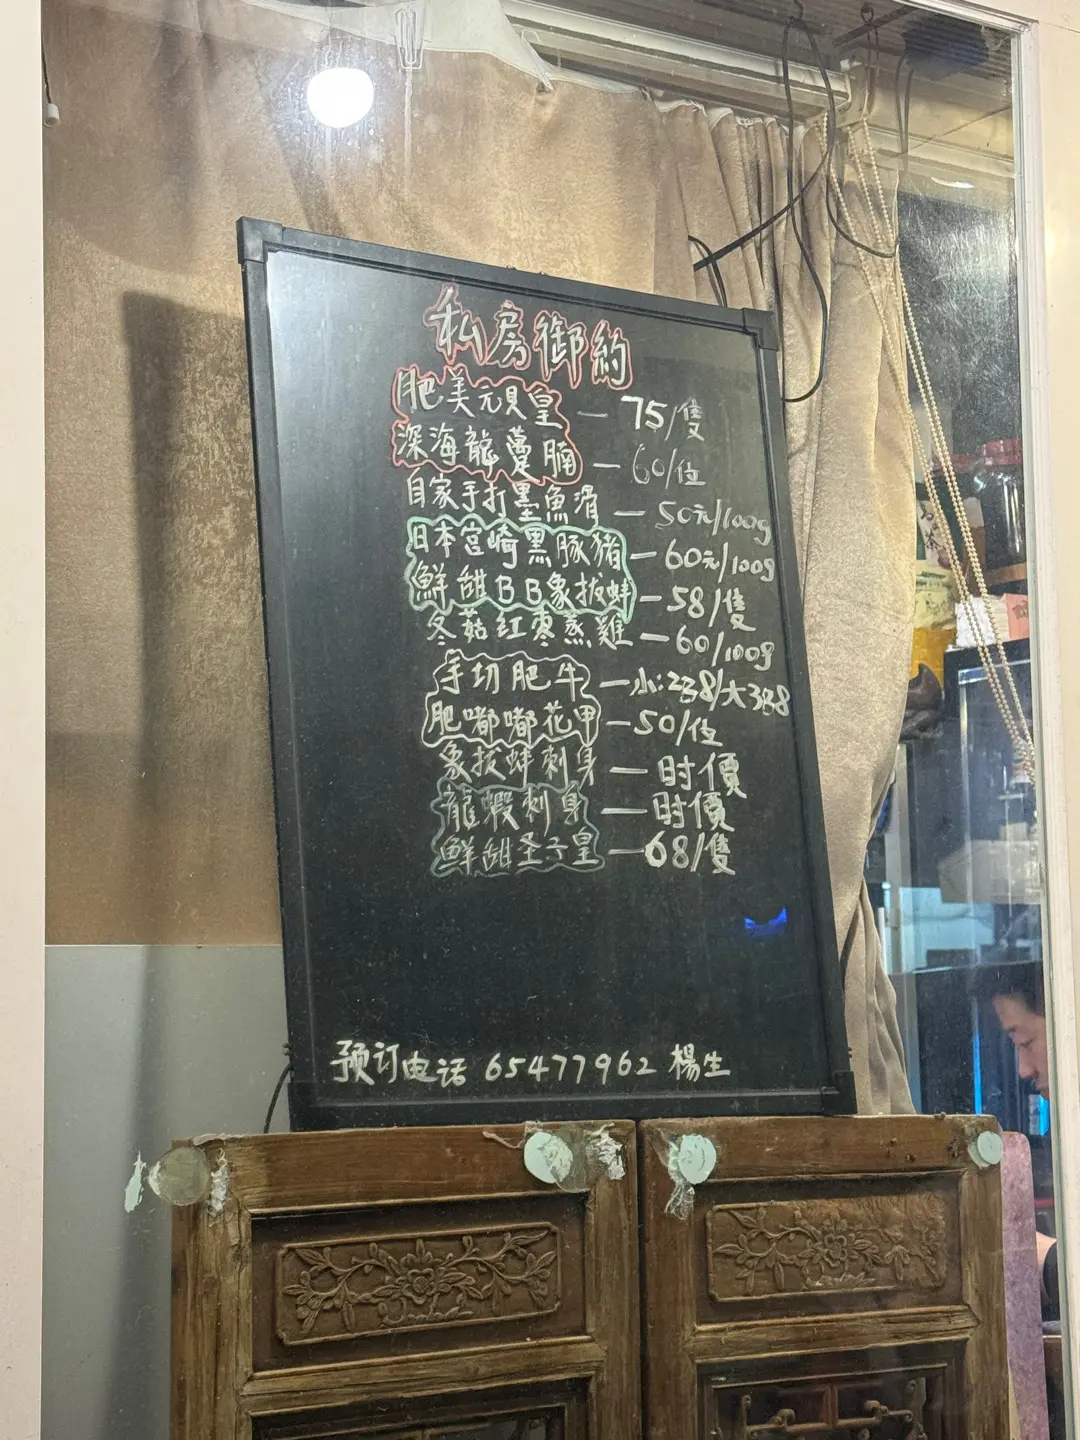 私房御約
肥美元貝皇 — 75/隻
深海龍躉腩 — 60/位
自家手打墨魚滑 — 50元/100g
日本宮崎黑豚豬 — 60元/100g
鮮甜BB象拔蚌 — 58/隻
冬菇红枣蒸雞 — 60/100g
手切肥牛 — 小:238/大388
肥嘟嘟花甲 — 50/位
象拔蚌刺身 — 时價
龍蝦刺身 — 时價
鮮甜圣子皇 — 68/隻
预订电话 65477962 楊生